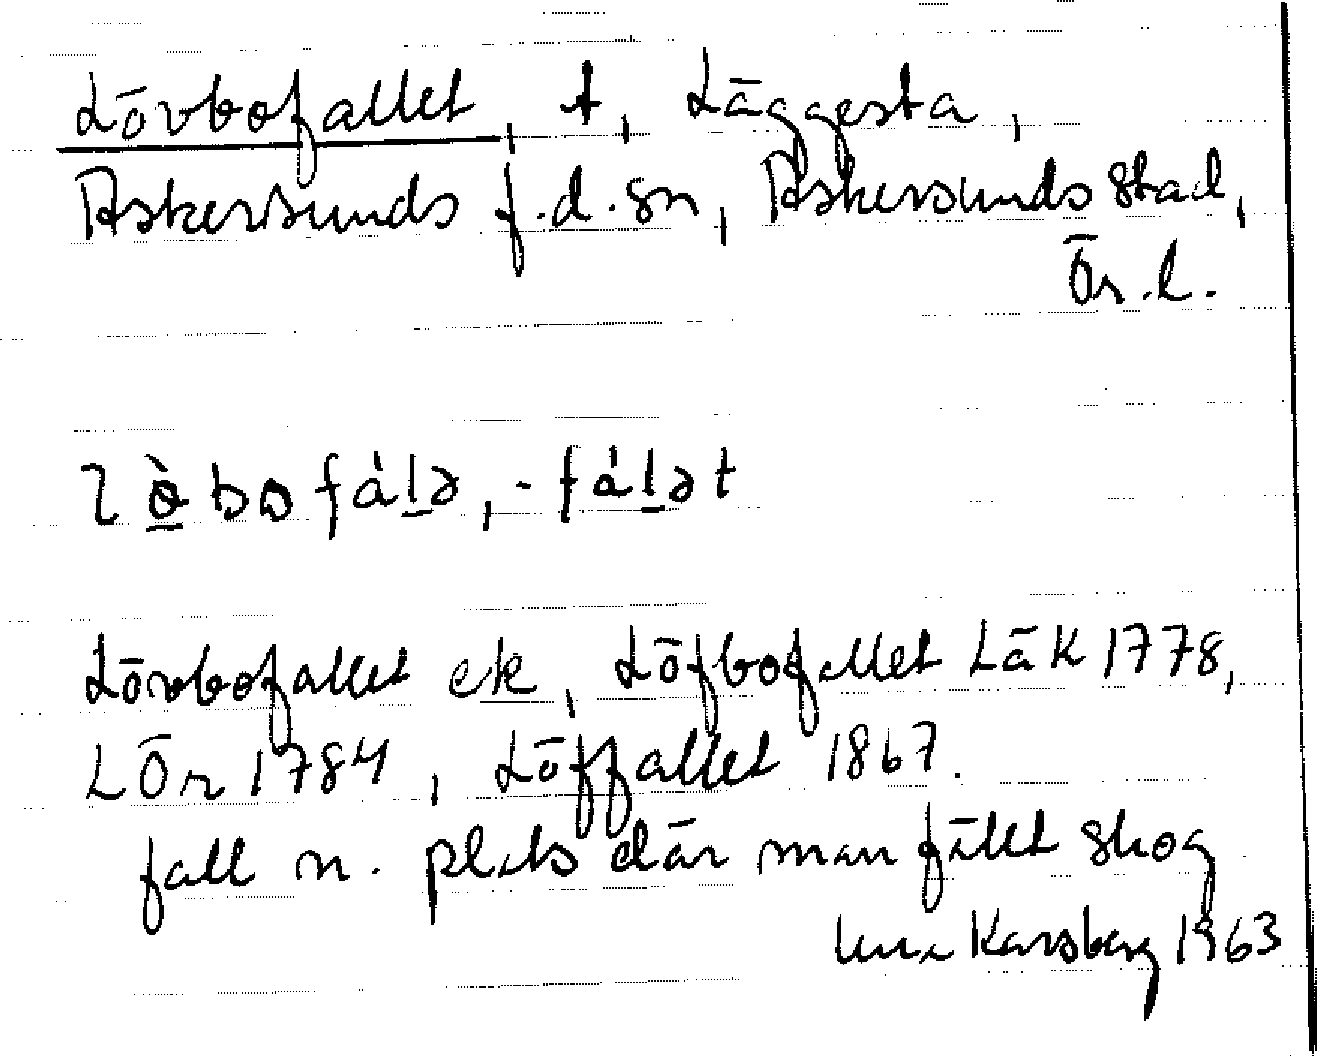 Lövbofallet, t, Läggesta,
Askersunds f.d. sn, Askersunds stad,
Ör. l.
lòbofálə, -fálət
Lövbofallet ek, Löfbofallet LäK 1778,
LÖr 1784, Löffallet 1867.
fall n. plats där man fällt skog
Karsberg 1963